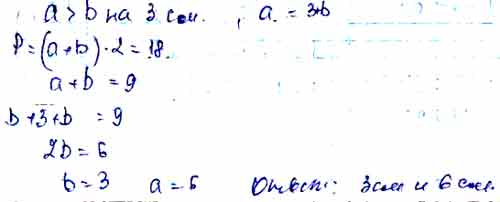 a > b на 3 см. , a = 3+b
P = (a+b)·2 = 18.
a + b = 9
b + 3 + b = 9
2b = 6
b = 3 a = 6 Ответ: 3 см и 6 см.